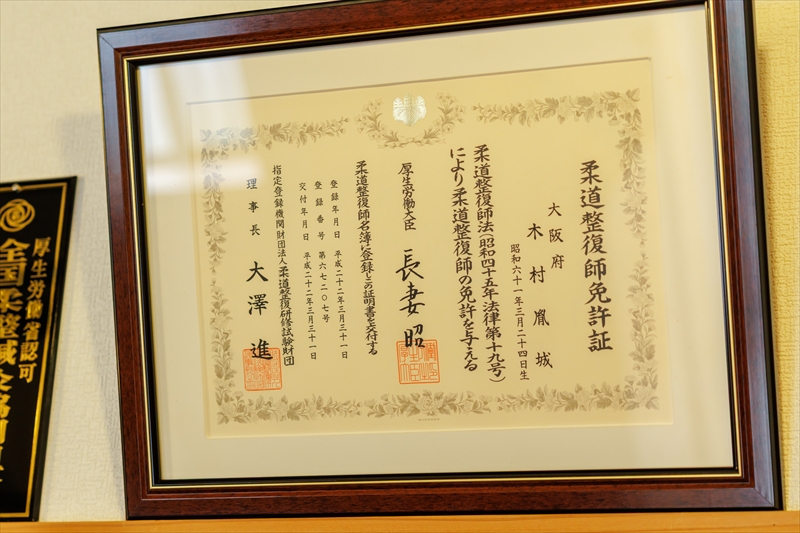 柔道整復師免許証
大阪府
木村胤城
昭和六十一年三月二十四日生
柔道整復師法(昭和四十五年法律第十九号)
により柔道整復師の免許を与える
厚生労働大臣 長妻昭
柔道整復師名簿に登録しこの証明書を交付する
登録年月日 平成二十二年三月三十一日
登録番号 第六七二〇七号
交付年月日 平成二十二年三月三十一日
指定登録機関財団法人柔道整復研修試験財団
理事長 大澤進
厚生労働省認可
全国柔整鍼灸協同組合